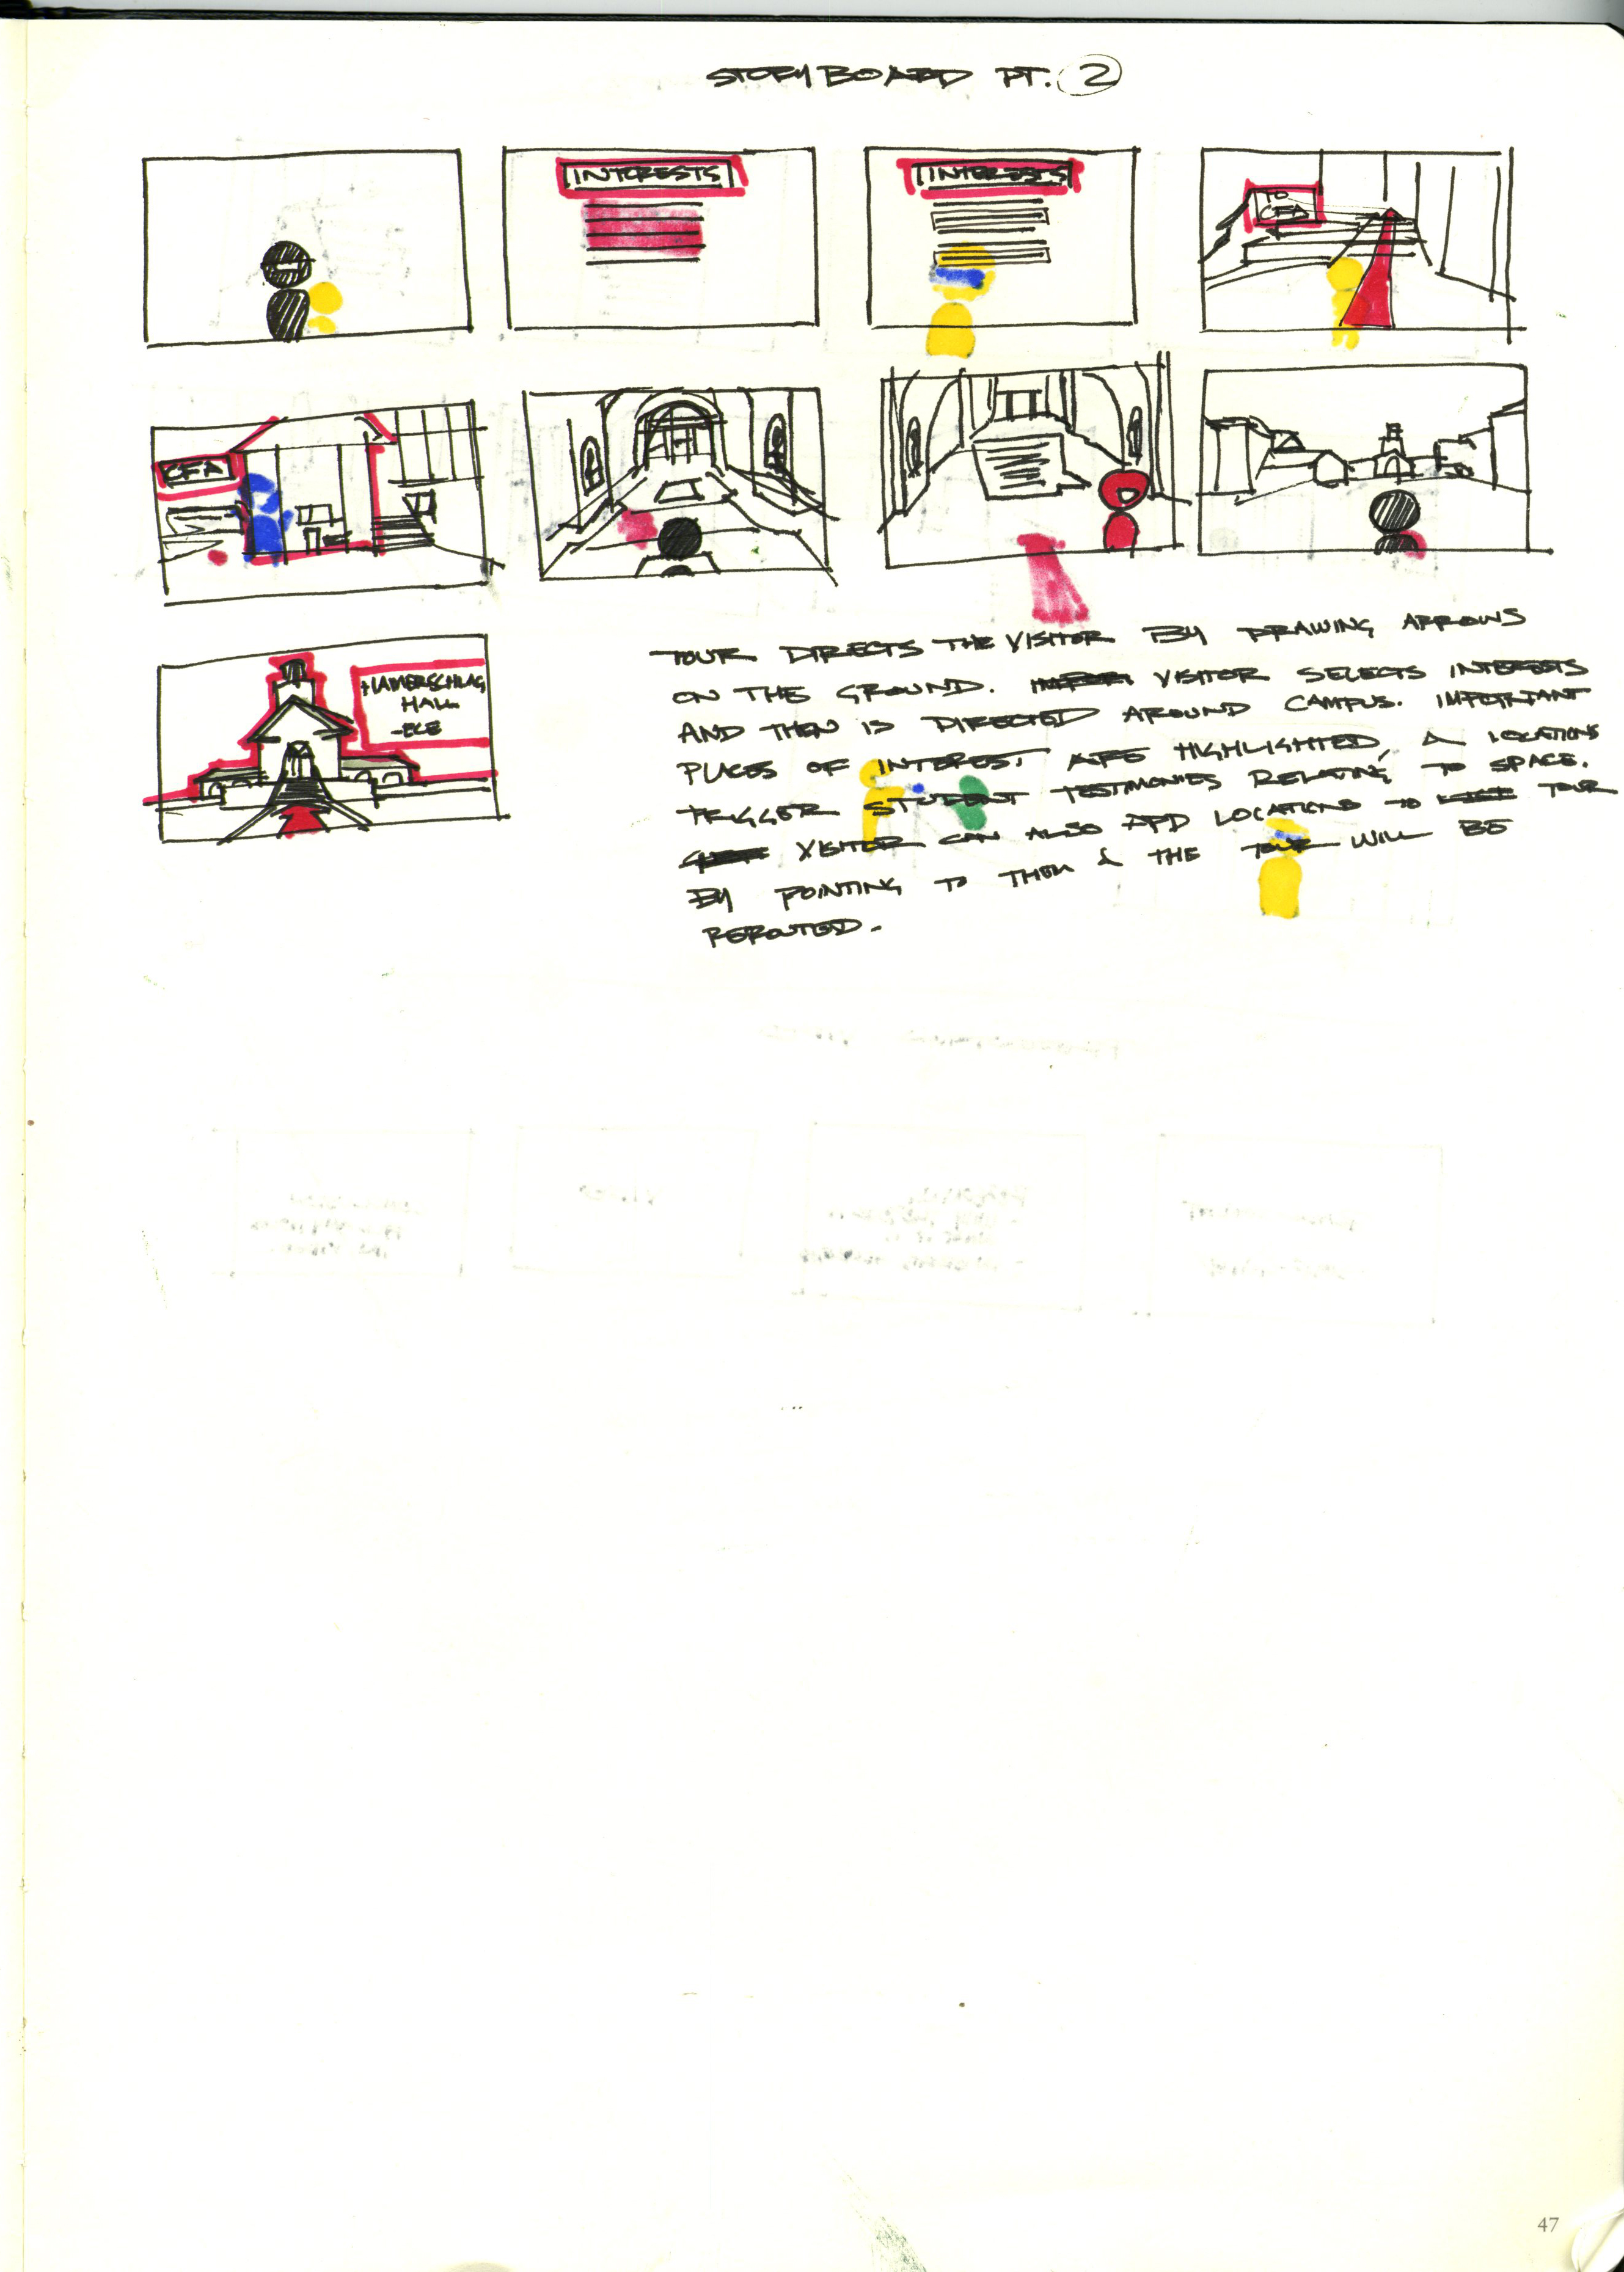 STORYBOARD PT. 2
INTERESTS
INTERESTS
TO
CFA
CFA
HAMERSCHLAG
HALL
-ECE
TOUR DIRECTS THE VISITOR BY DRAWING ARROWS
ON THE GROUND. VISITOR SELECTS INTERESTS
AND THEN IS DIRECTED AROUND CAMPUS. IMPORTANT
PLACES OF INTEREST ARE HIGHLIGHTED, & LOCATIONS
TRIGGER STUDENT TESTIMONIES RELATING TO SPACE.
VISITER CAN ALSO ADD LOCATIONS TO TOUR
BY POINTING TO THEM & THE TOUR WILL BE
REROUTED.
47